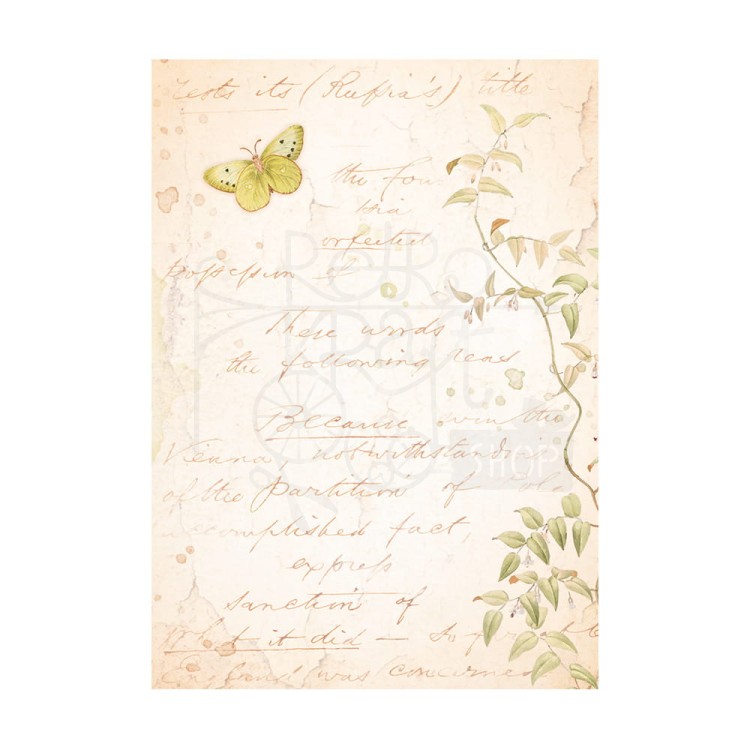 rests its (Russia's) title
the fou
orfected
possession of
These words
the following reas
Because
Vienna, notwithstandi
of the Partition of Pol
accomplished fact,
express
sanction of
What it did —
England (was concerned
Retro
Kraft
SHOP